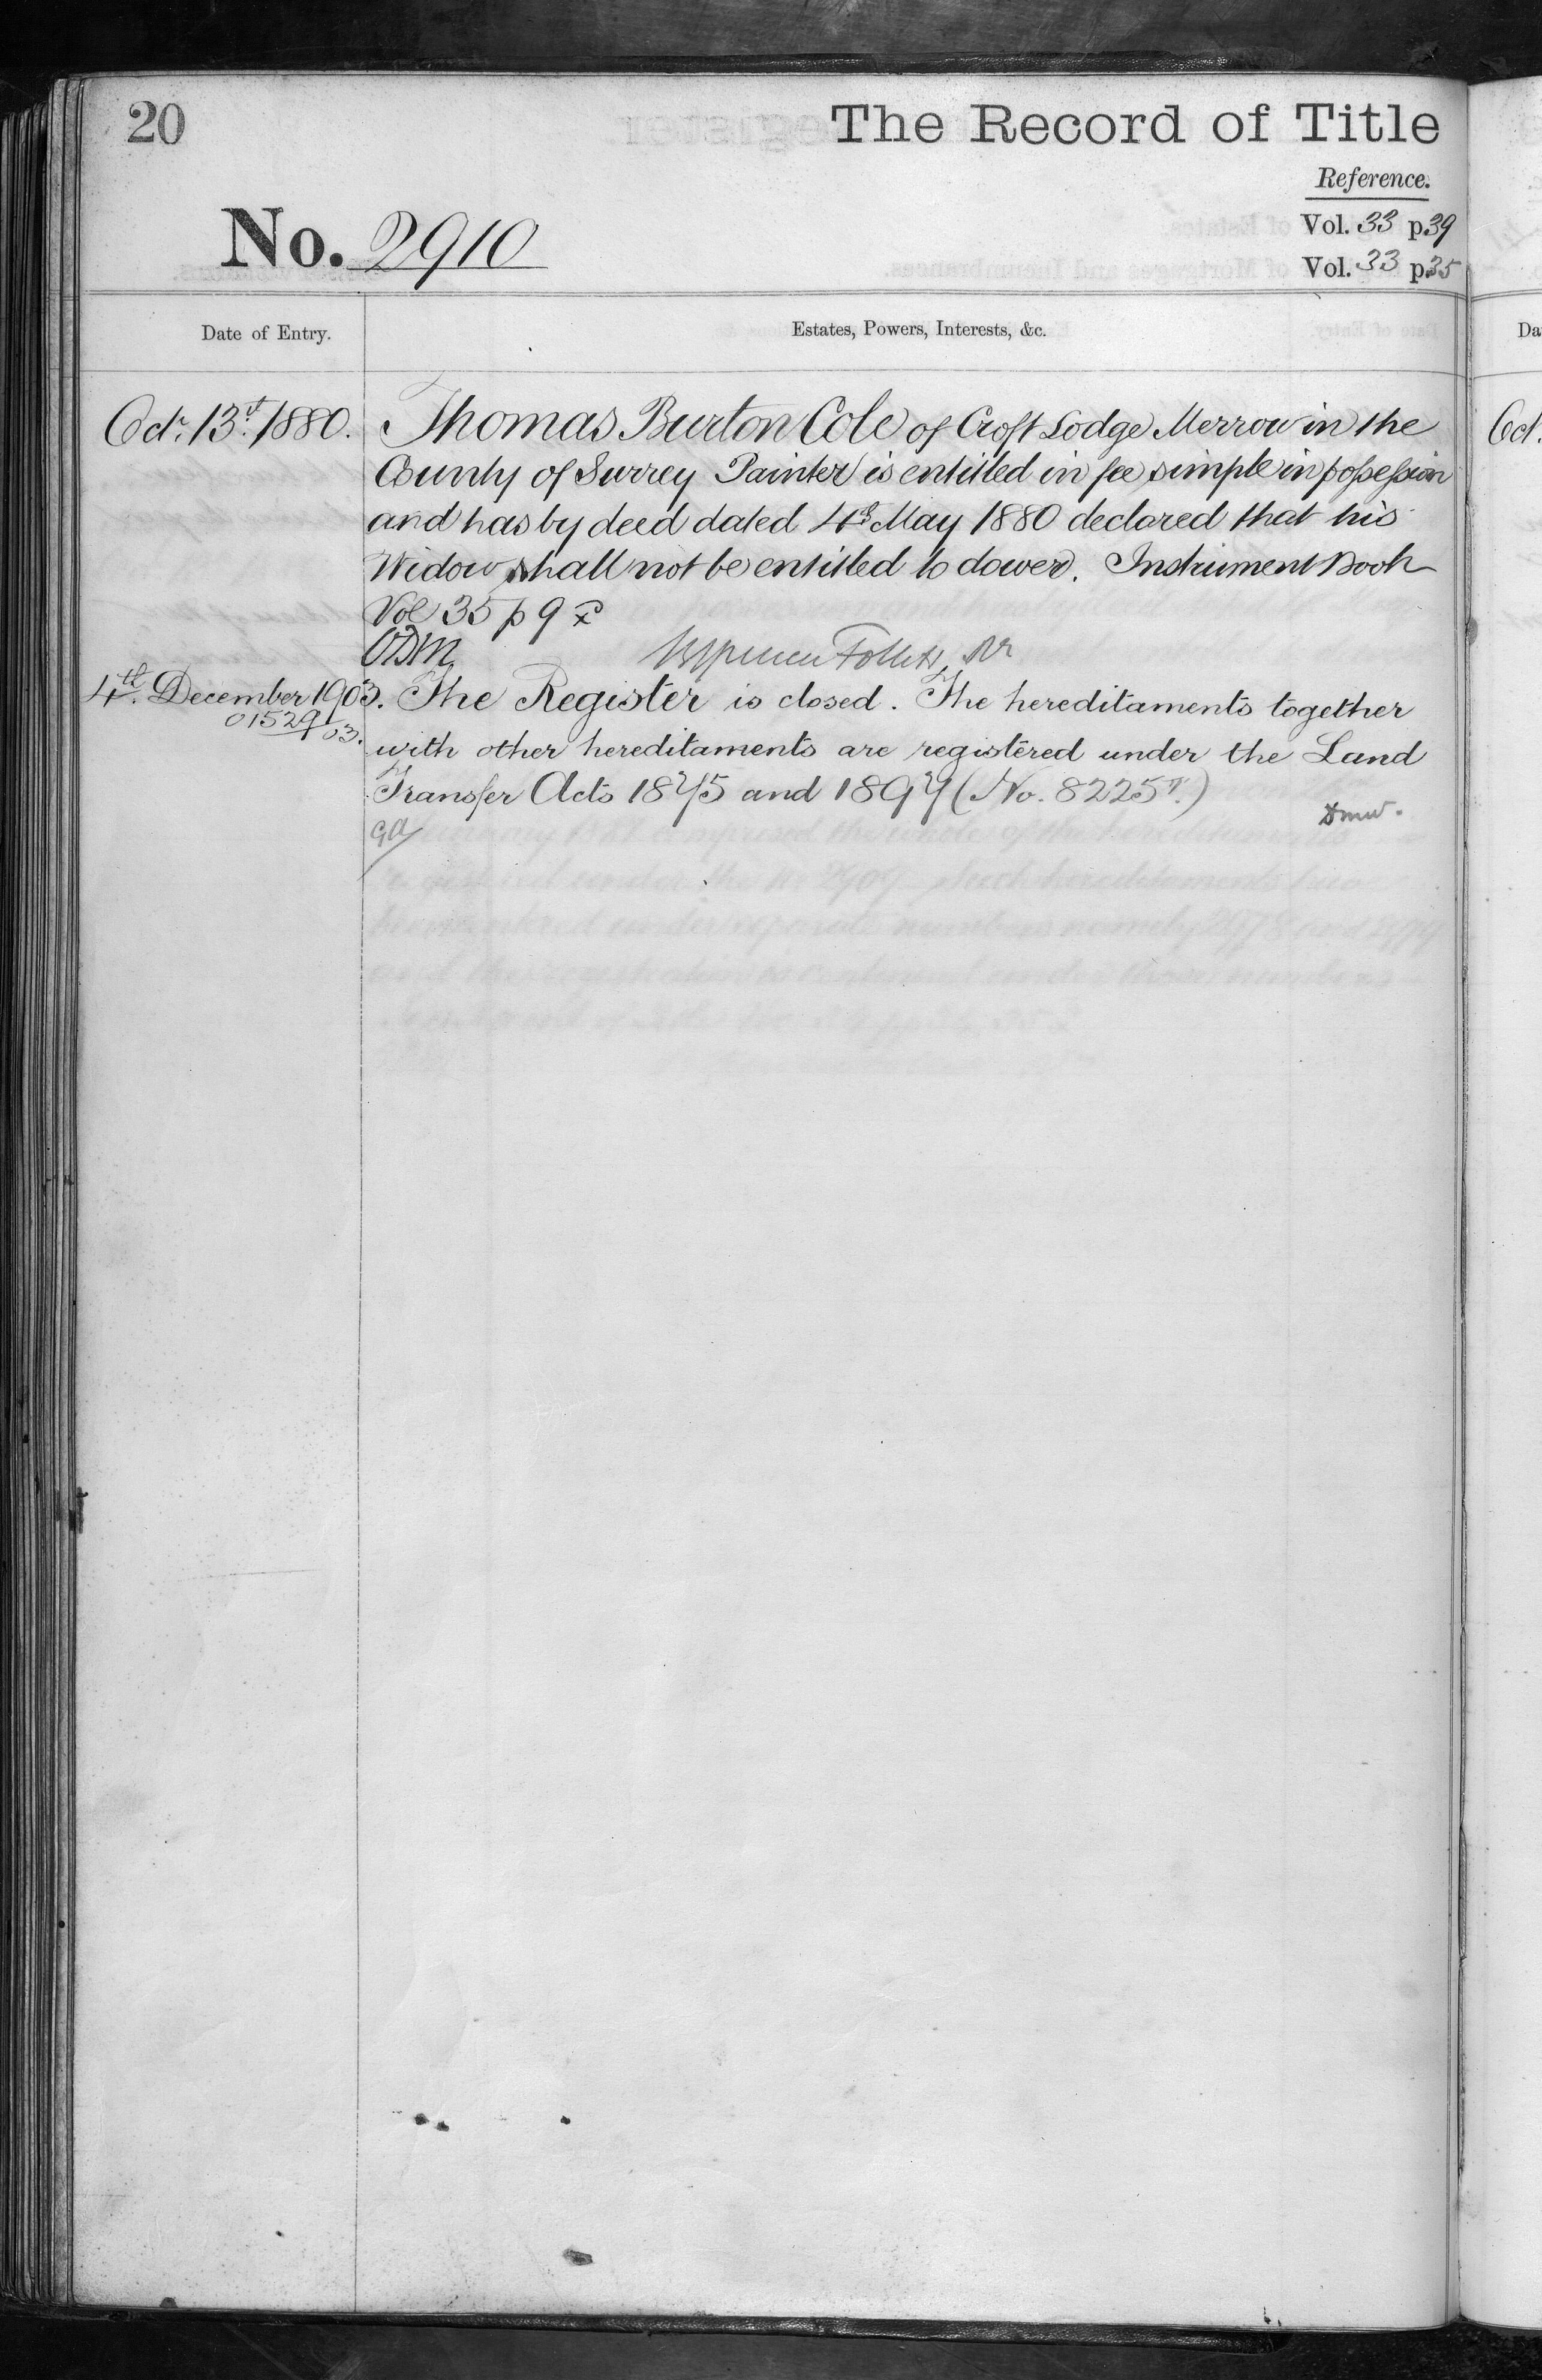 20
The Record of Title
Reference.
No. 2910
Vol. 33 p. 39
Vol. 33 p. 35
Date of Entry.
Estates, Powers, Interests, &c.
Octr. 13th. 1880.
Thomas Burton Cole of Croft Lodge Merrow in the
County of Surrey Painter is entitled in fee simple in possession
and has by deed dated 4th May 1880 declared that his
Widow shall not be entitled to dower. Instrument Book
Vol 35 p 9
Follett
4th. December 1903.
01529/03.
The Register is closed. The hereditaments together
with other hereditaments are registered under the Land
Transfer Acts 1875 and 1897 (No. 82257.)
Da
Oct.